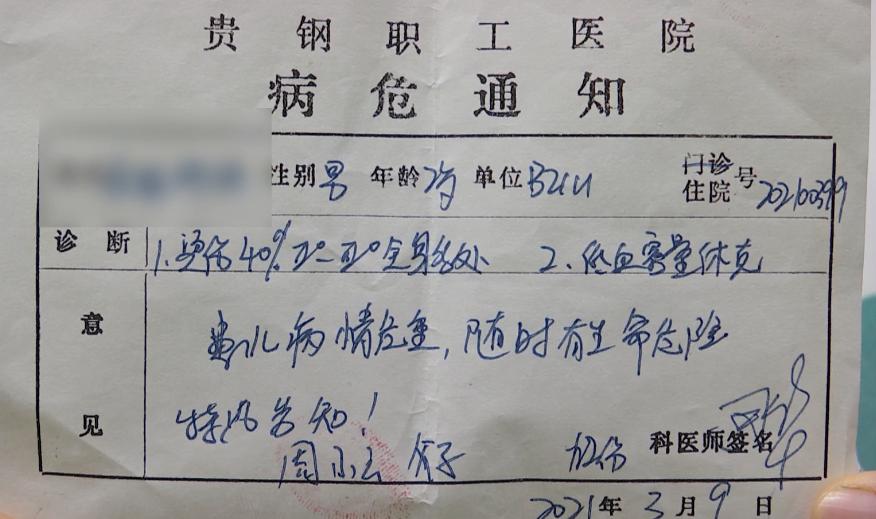 贵钢职工医院
病危通知
性别 男 年龄 2岁 单位 BICU 门诊 住院 号 20210399
诊断 1.烫伤40% Ⅱ°-Ⅲ°全身多处 2.低血容量休克
意见
患儿病情危重,随时有生命危险
特此告知!
周 父子 烧伤 科医师签名
2021年3月9日